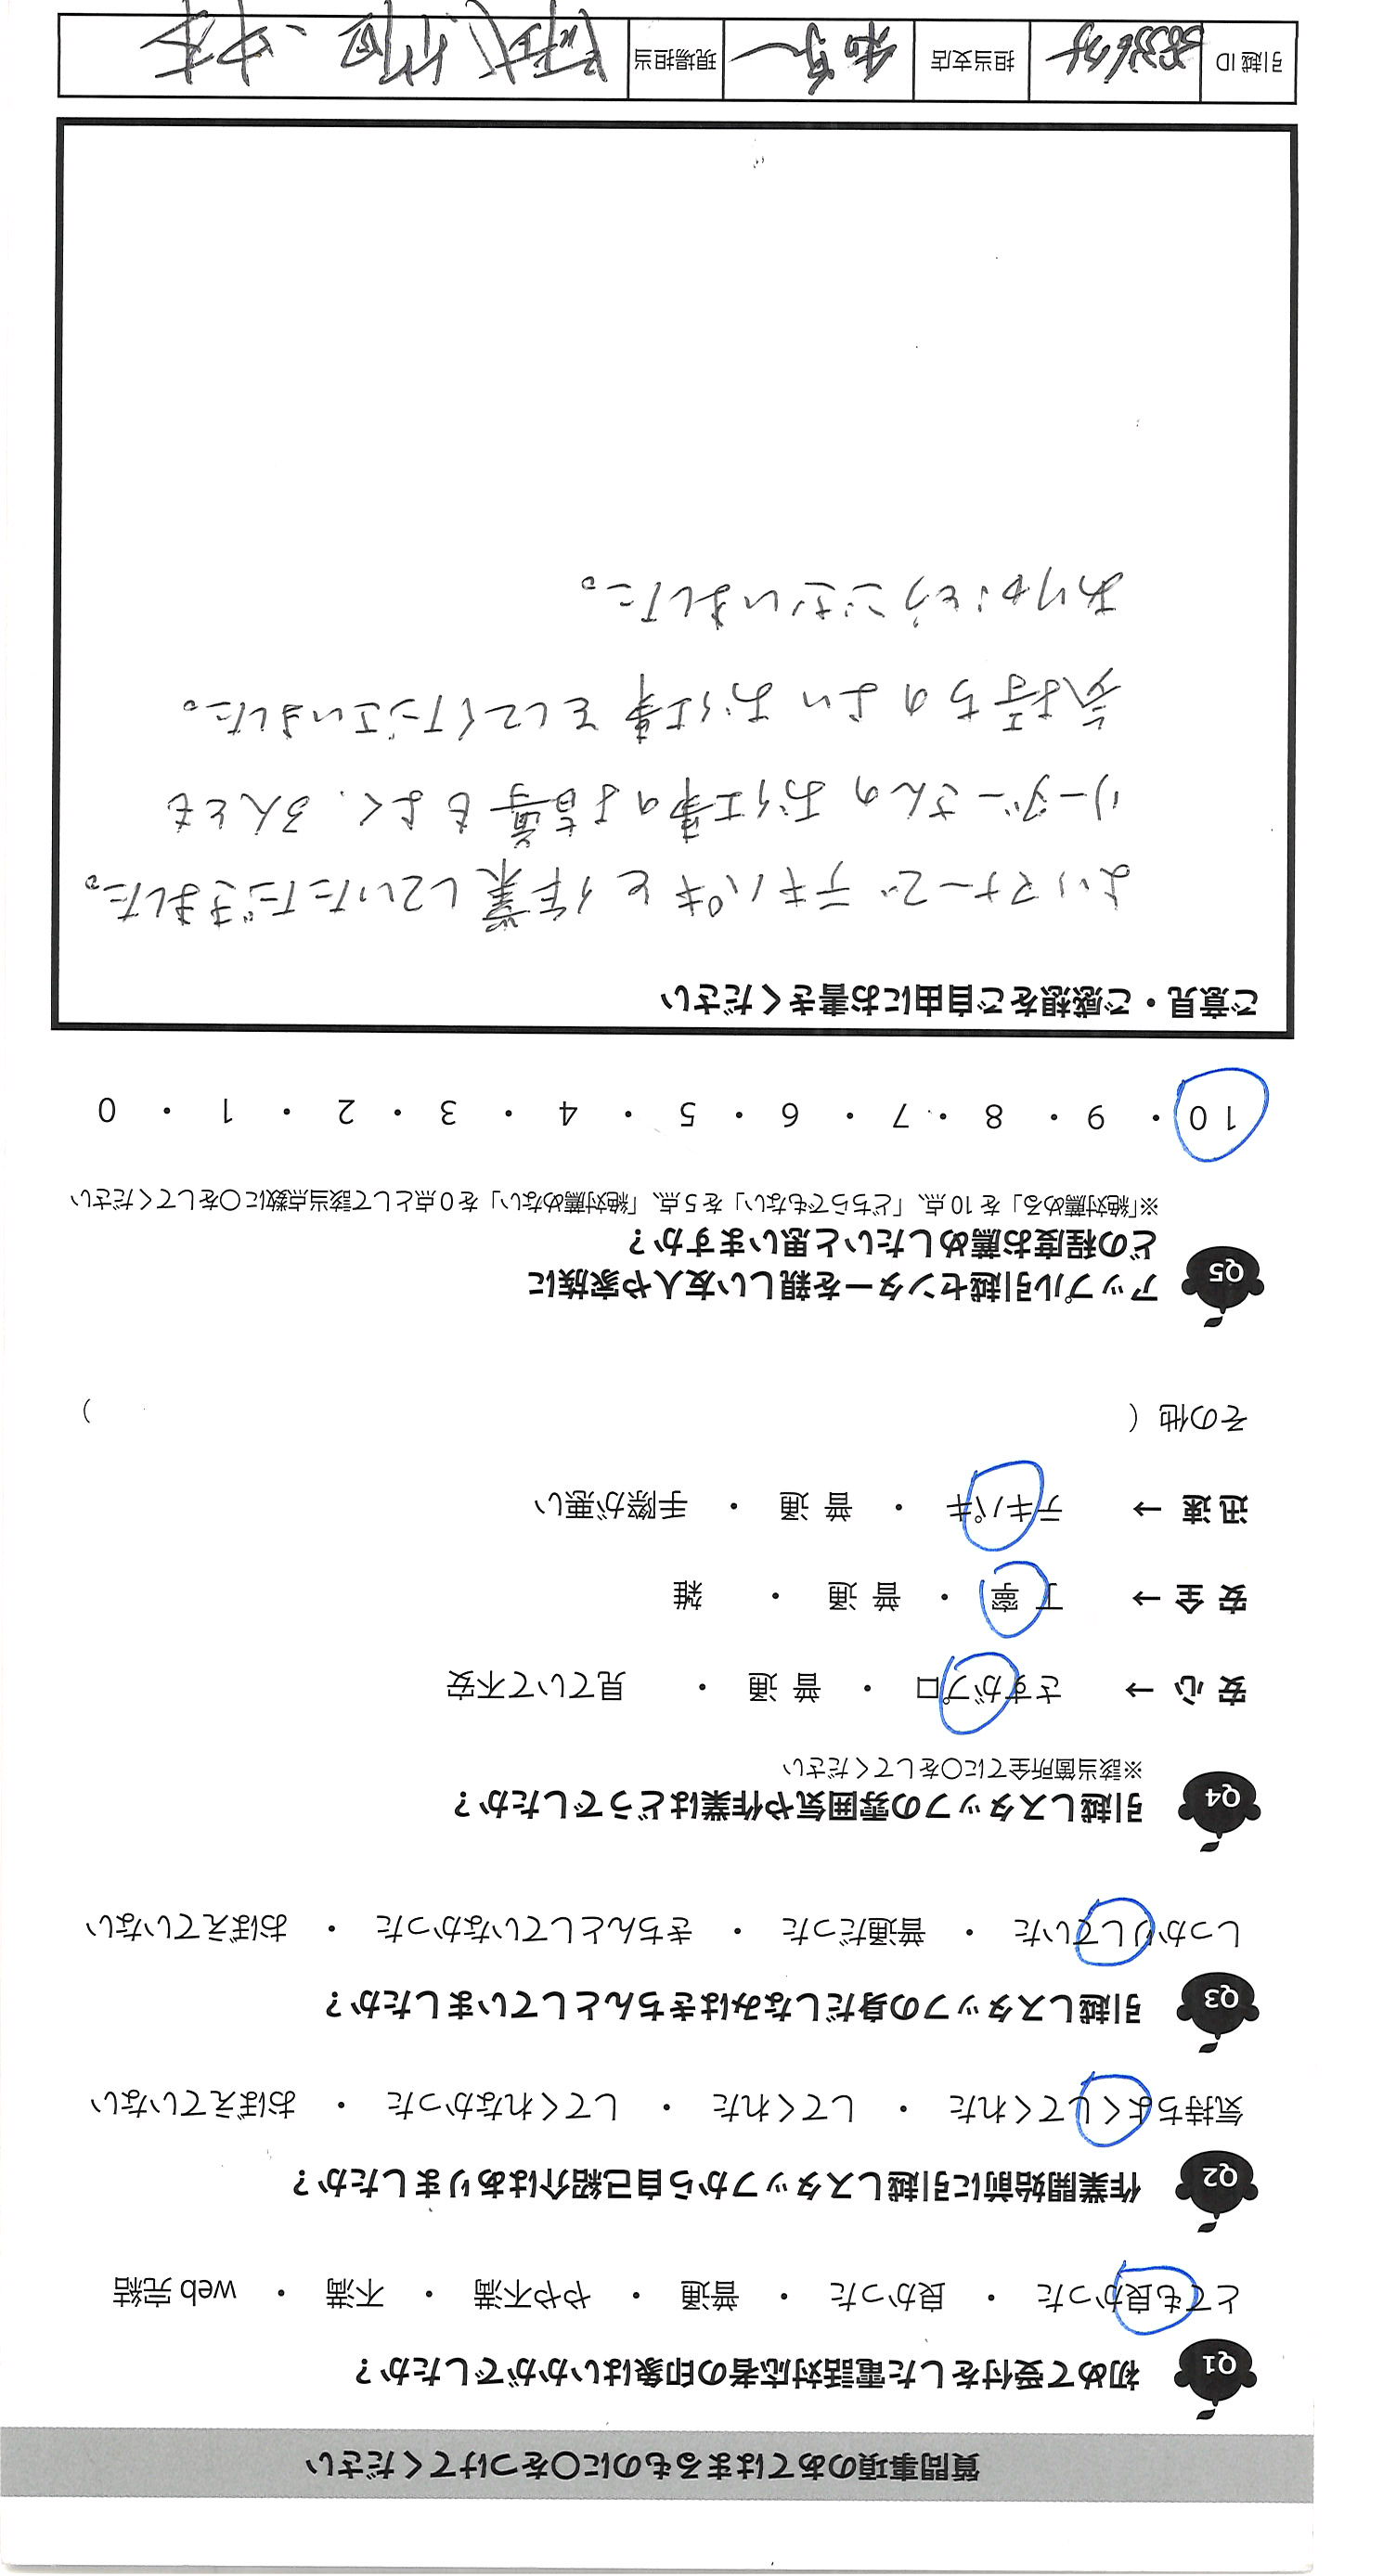 質問事項のあてはまるものに〇をつけてください
Q1 初めて受付をした電話対応者の印象はいかがでしたか？
とても良かった ・ 良かった ・ 普通 ・ やや不満 ・ 不満 ・ web 完結
Q2 作業開始前に引越しスタッフから自己紹介はありましたか？
気持ちよくしてくれた ・ してくれた ・ してくれなかった ・ おぼえていない
Q3 引越しスタッフの身だしなみはきちんとしていましたか？
しっかりしていた ・ 普通だった ・ きちんとしていなかった ・ おぼえていない
Q4 引越しスタッフの雰囲気や作業はどうでしたか？
※該当箇所全てに〇をしてください
安 心 → さすがプロ ・ 普 通 ・ 見ていて不安
安 全 → 丁 寧 ・ 普 通 ・ 雑
迅 速 → テキパキ ・ 普 通 ・ 手際が悪い
その他（ ）
Q5 アップル引越センターを親しい友人や家族に
どの程度お薦めしたいと思いますか？
※「絶対薦める」を 10 点、「どちらでもない」を 5 点、「絶対薦めない」を 0 点として該当点数に〇をしてください
10 ・ 9 ・ 8 ・ 7 ・ 6 ・ 5 ・ 4 ・ 3 ・ 2 ・ 1 ・ 0
ご意見・ご感想をご自由にお書きください
よいマナーで テキパキと作業していただきました。
リーダーさんのお仕事の指導もよく、3人とも
気持ちのよいお仕事をしてくださいました。
ありがとうございました。
引越 ID 担当支店 現場担当